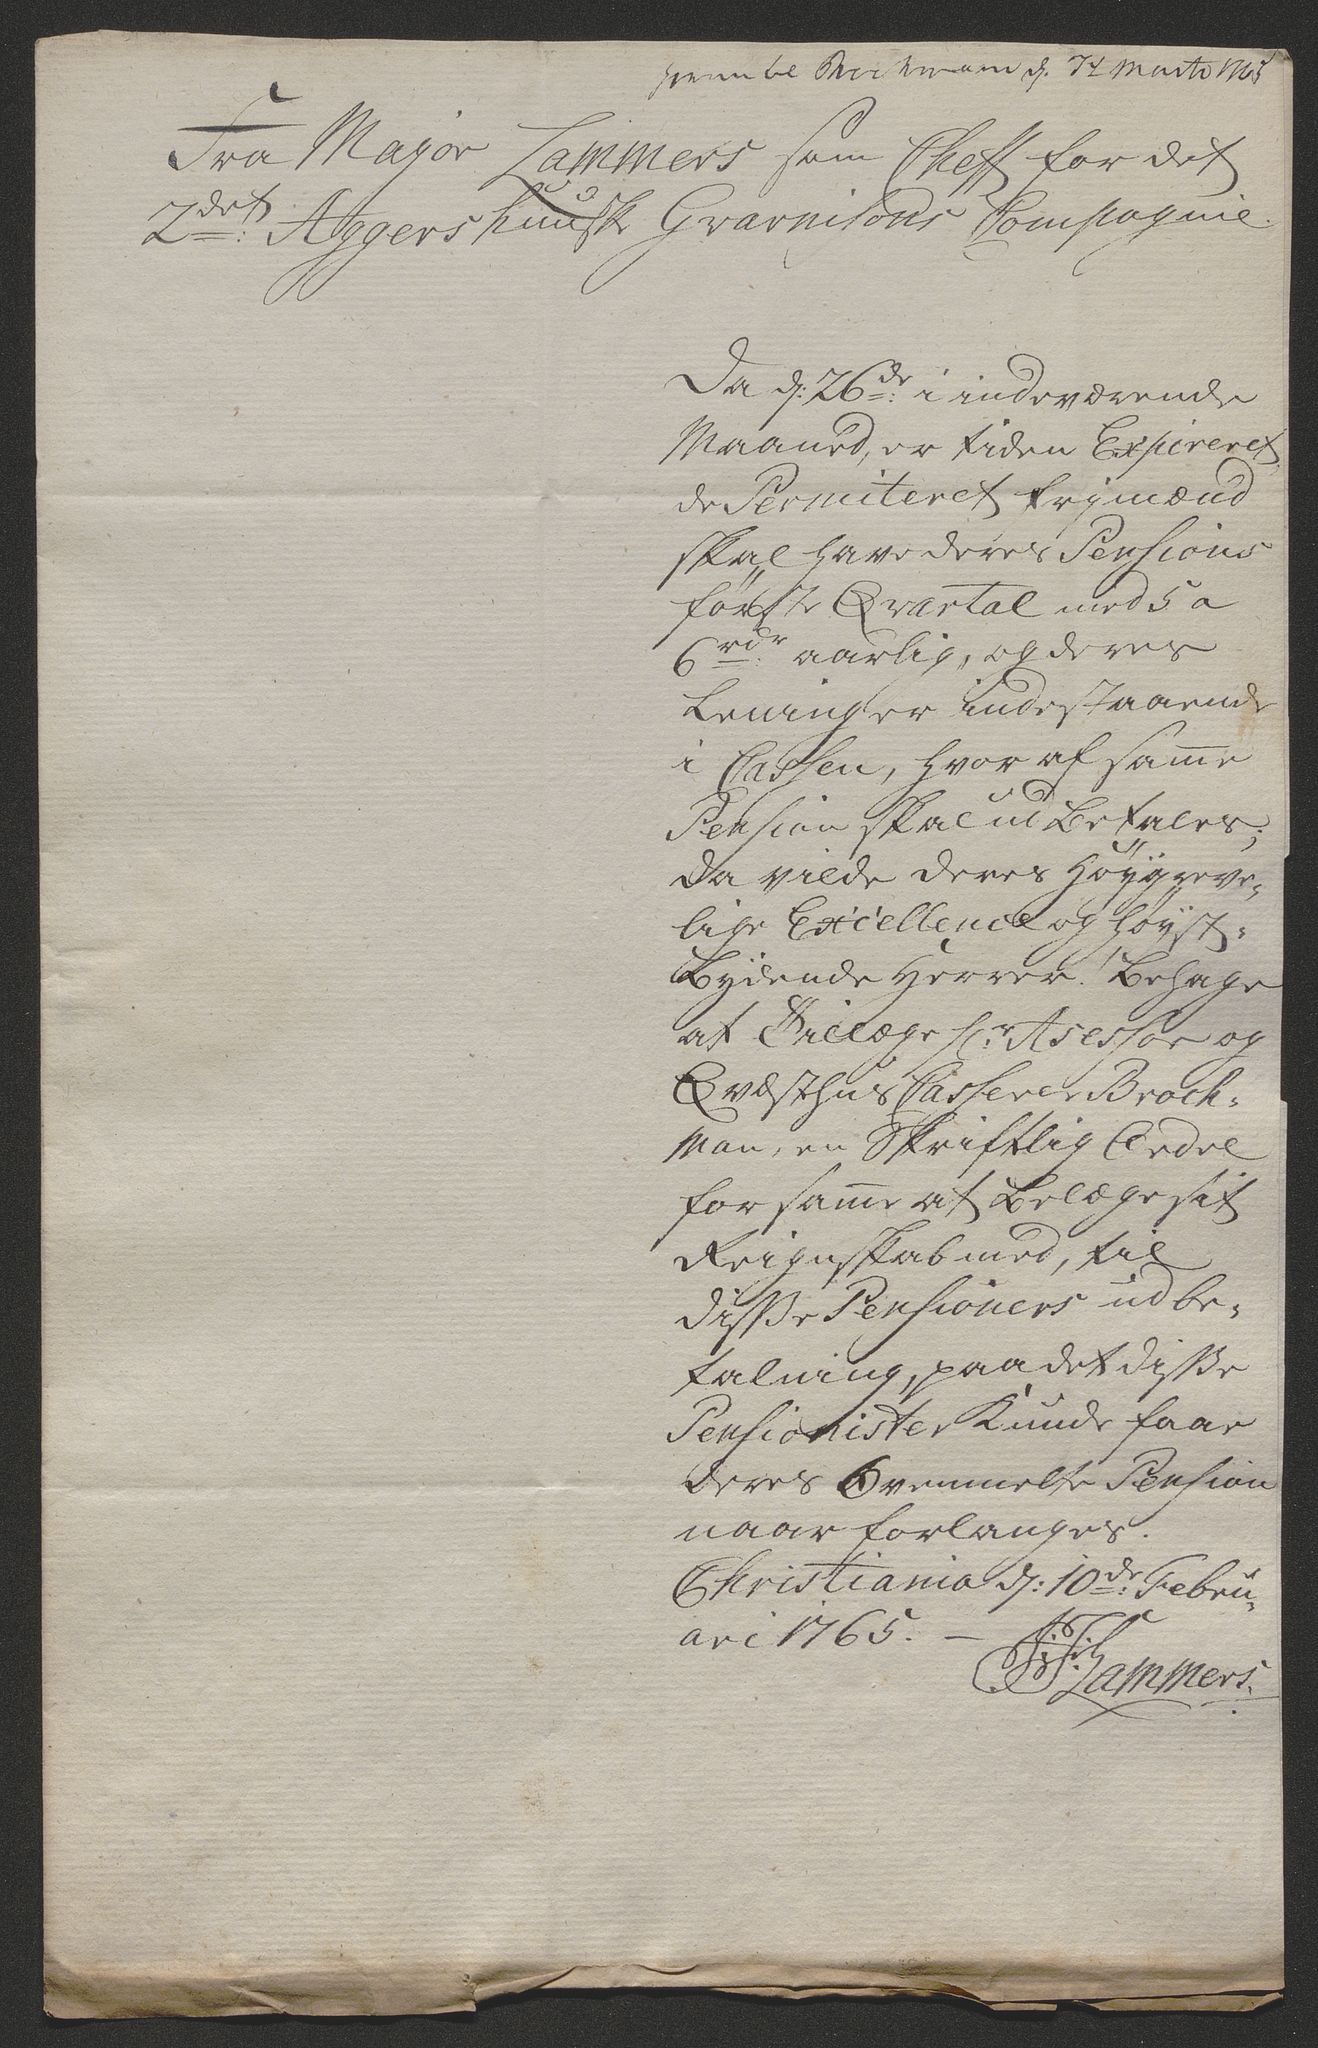 Brochmann d. 14 Marti 1765
Fra Major Lammers som Cheff for det
2det: Aggershuusk Gvarnisons Compagnie.
Da d: 26de: i indeværende
Maaned, er tiden Expireret,
de Permiteret frymænd
skal have deres Pensions
første Qvartal med 5 a
6rdr: aarlig, og deres
Peninger indestaaende
i Cassen, hvor af samme
Pension skal ud Betales;
da vilde Deres Høygreve-
lige Excellence og høyst-
Bydende Herrer! Behage
at Tillæge hr: Asessor og
Qvæsthus Casserer Broch-
man, en Skriftlig Ordre
for samme at Belæge sit
Reignskab med, til
disse Pensioners udbe-
talning, paa det disse
Pensionister Kunde faae
deres Ovenmelte Pension
naar forlanges.
Christiania d: 10de: Febru-
ari 1765. –
Lammers.